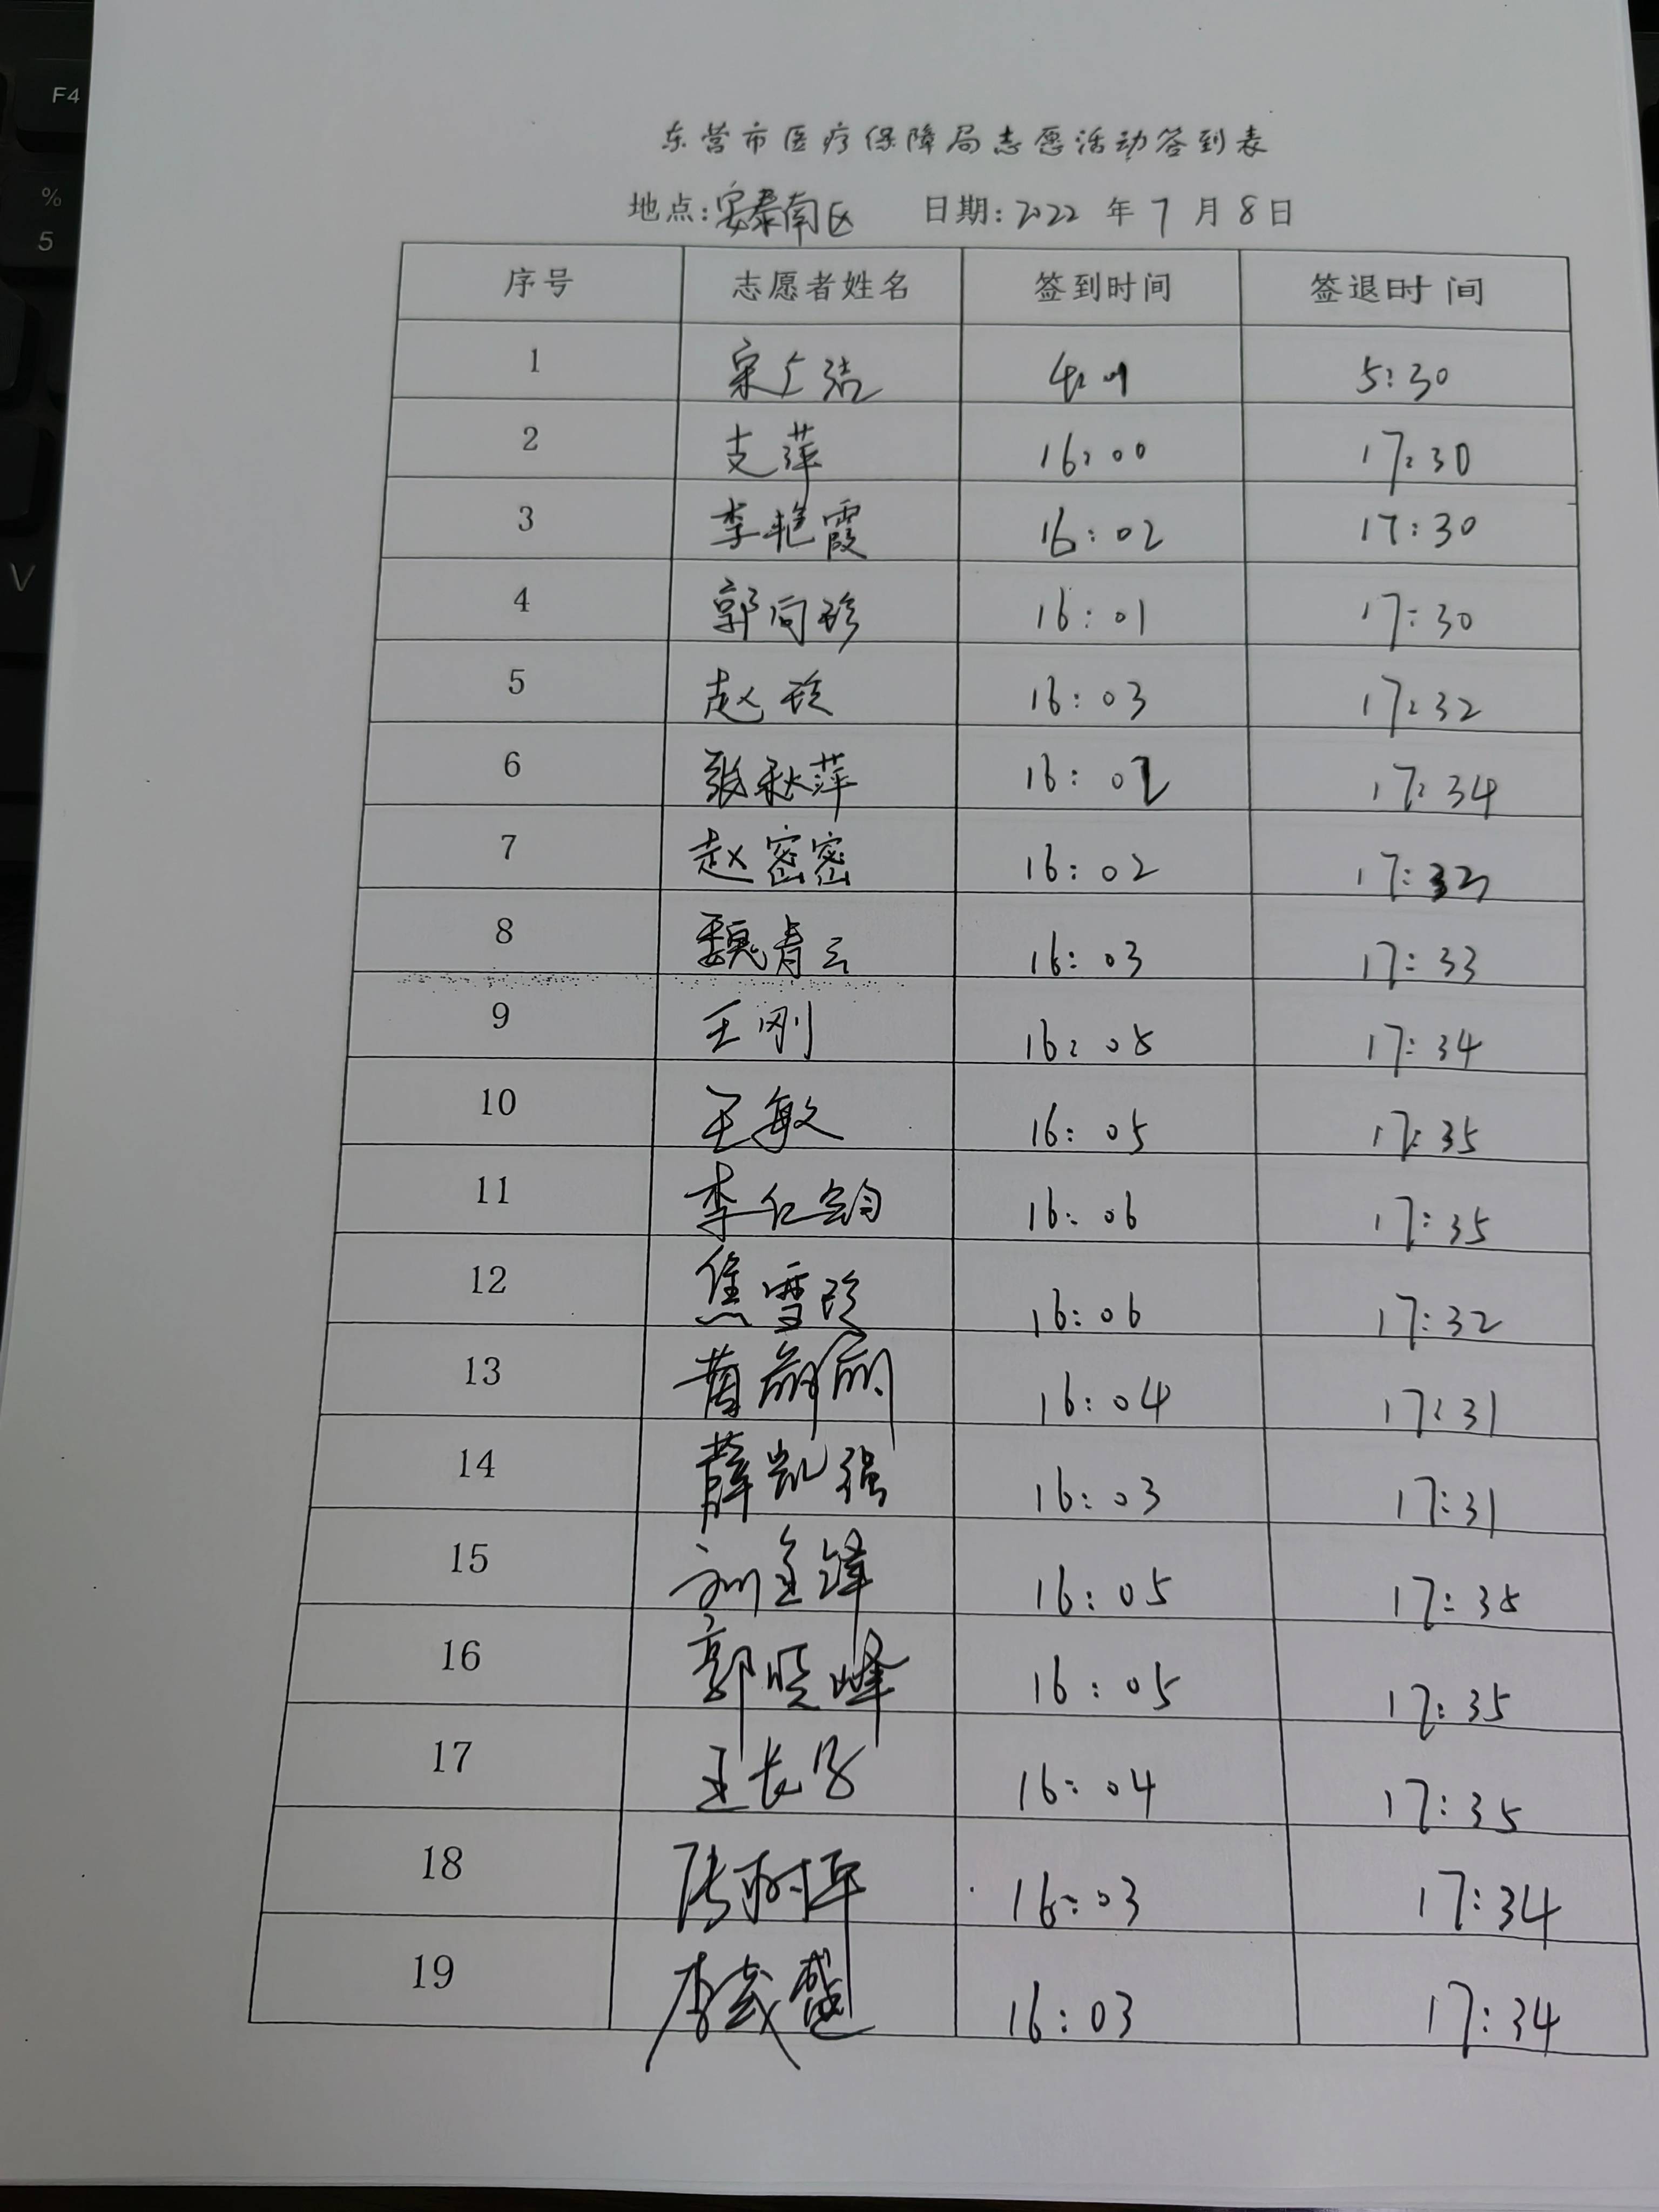 F4
%
5
V
东营市医疗保障局志愿活动签到表
地点:安泰南区 日期:2022年7月8日
序号 志愿者姓名 签到时间 签退时间
1 5:30
2 支萍 16:00 17:30
3 李艳霞 16:02 17:30
4 郭向珍 16:01 17:30
5 赵珍 16:03 17:32
6 张秋萍 16:02 17:34
7 赵密密 16:02 17:32
8 魏青云 16:03 17:33
9 王刚 16:05 17:34
10 王敏 16:05 17:35
11 李仁钧 16:06 17:35
12 焦雪珍 16:06 17:32
13 16:04 17:31
14 薛凯强 16:03 17:31
15 刘金锋 16:05 17:35
16 郭晓峰 16:05 17:35
17 16:04 17:35
18 张树军 16:03 17:34
19 16:03 17:34